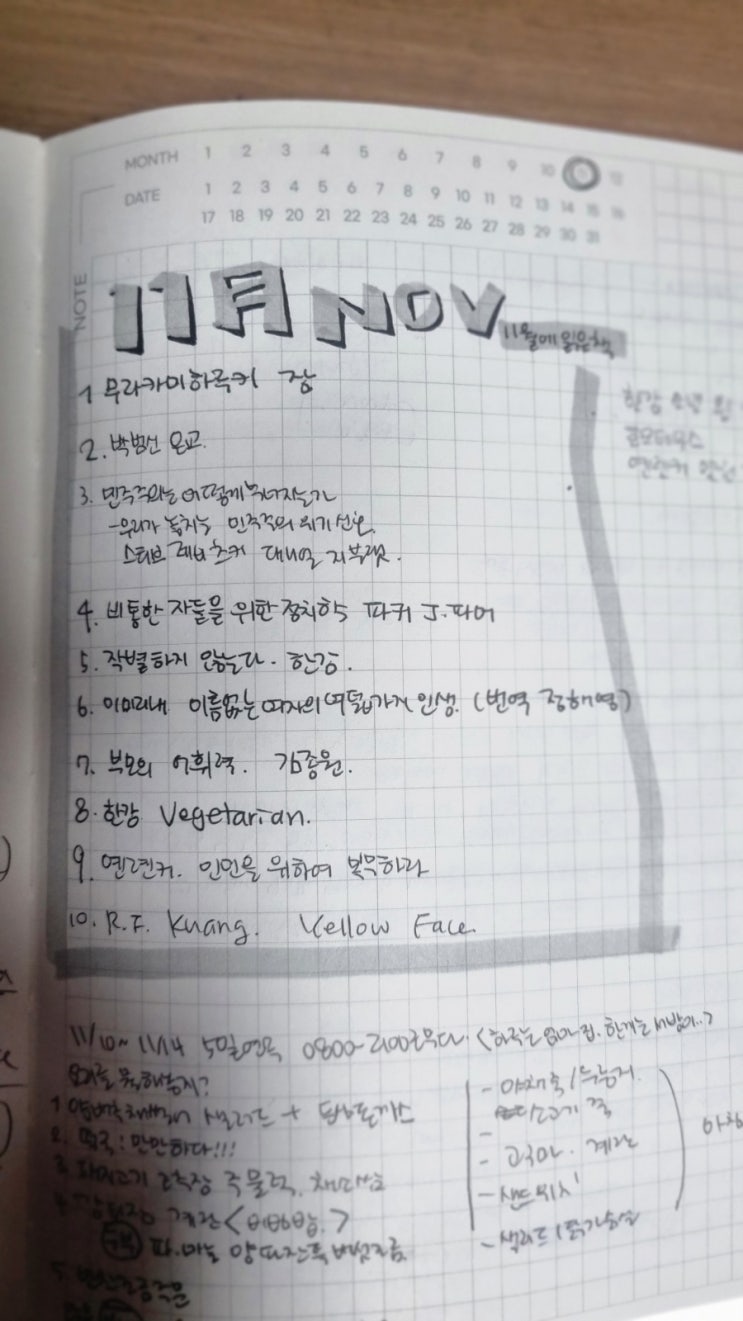 MONTH 1 2 3 4 5 6 7 8 9 10 12
DATE 1 2 3 4 5 6 7 8 9 10 11 12 13 14 15 16
17 18 19 20 21 22 23 24 25 26 27 28 29 30 31
NOTE
11月 NOV
11월에 읽은 책
1 무라카미하루키 장
2. 박범신 은교.
3. 민주주의는 어떻게 무너지는가
-우리가 놓치는 민주주의 위기 신호
스티브 레비츠키 대니얼 지블랫.
4. 비통한 자들을 위한 정치학 파커 J. 파머
5. 작별하지 않는다. 한강.
6. 이미리내 이름없는 여자의 여덟가지 인생. (번역 정해영)
7. 부모의 어휘력. 김종원.
8. 한강 Vegetarian.
9. 옌롄커. 인민을 위하여 복무하라
10. R.F. Kuang. Yellow Face.
11/10~11/14 5일연속 0800-2100근무다.
뭐를 못해놓지?
1 샐러드 + 돈까스
2. 떡국: 만만하다!!!
3 고추장 주물럭.
4 계란
파. 마늘
- 야채죽/누룽지.
죽
- 고구마. 계란
- 샌드위치
- 샐러드/닭가슴살
아침
한강 소년
옌롄커